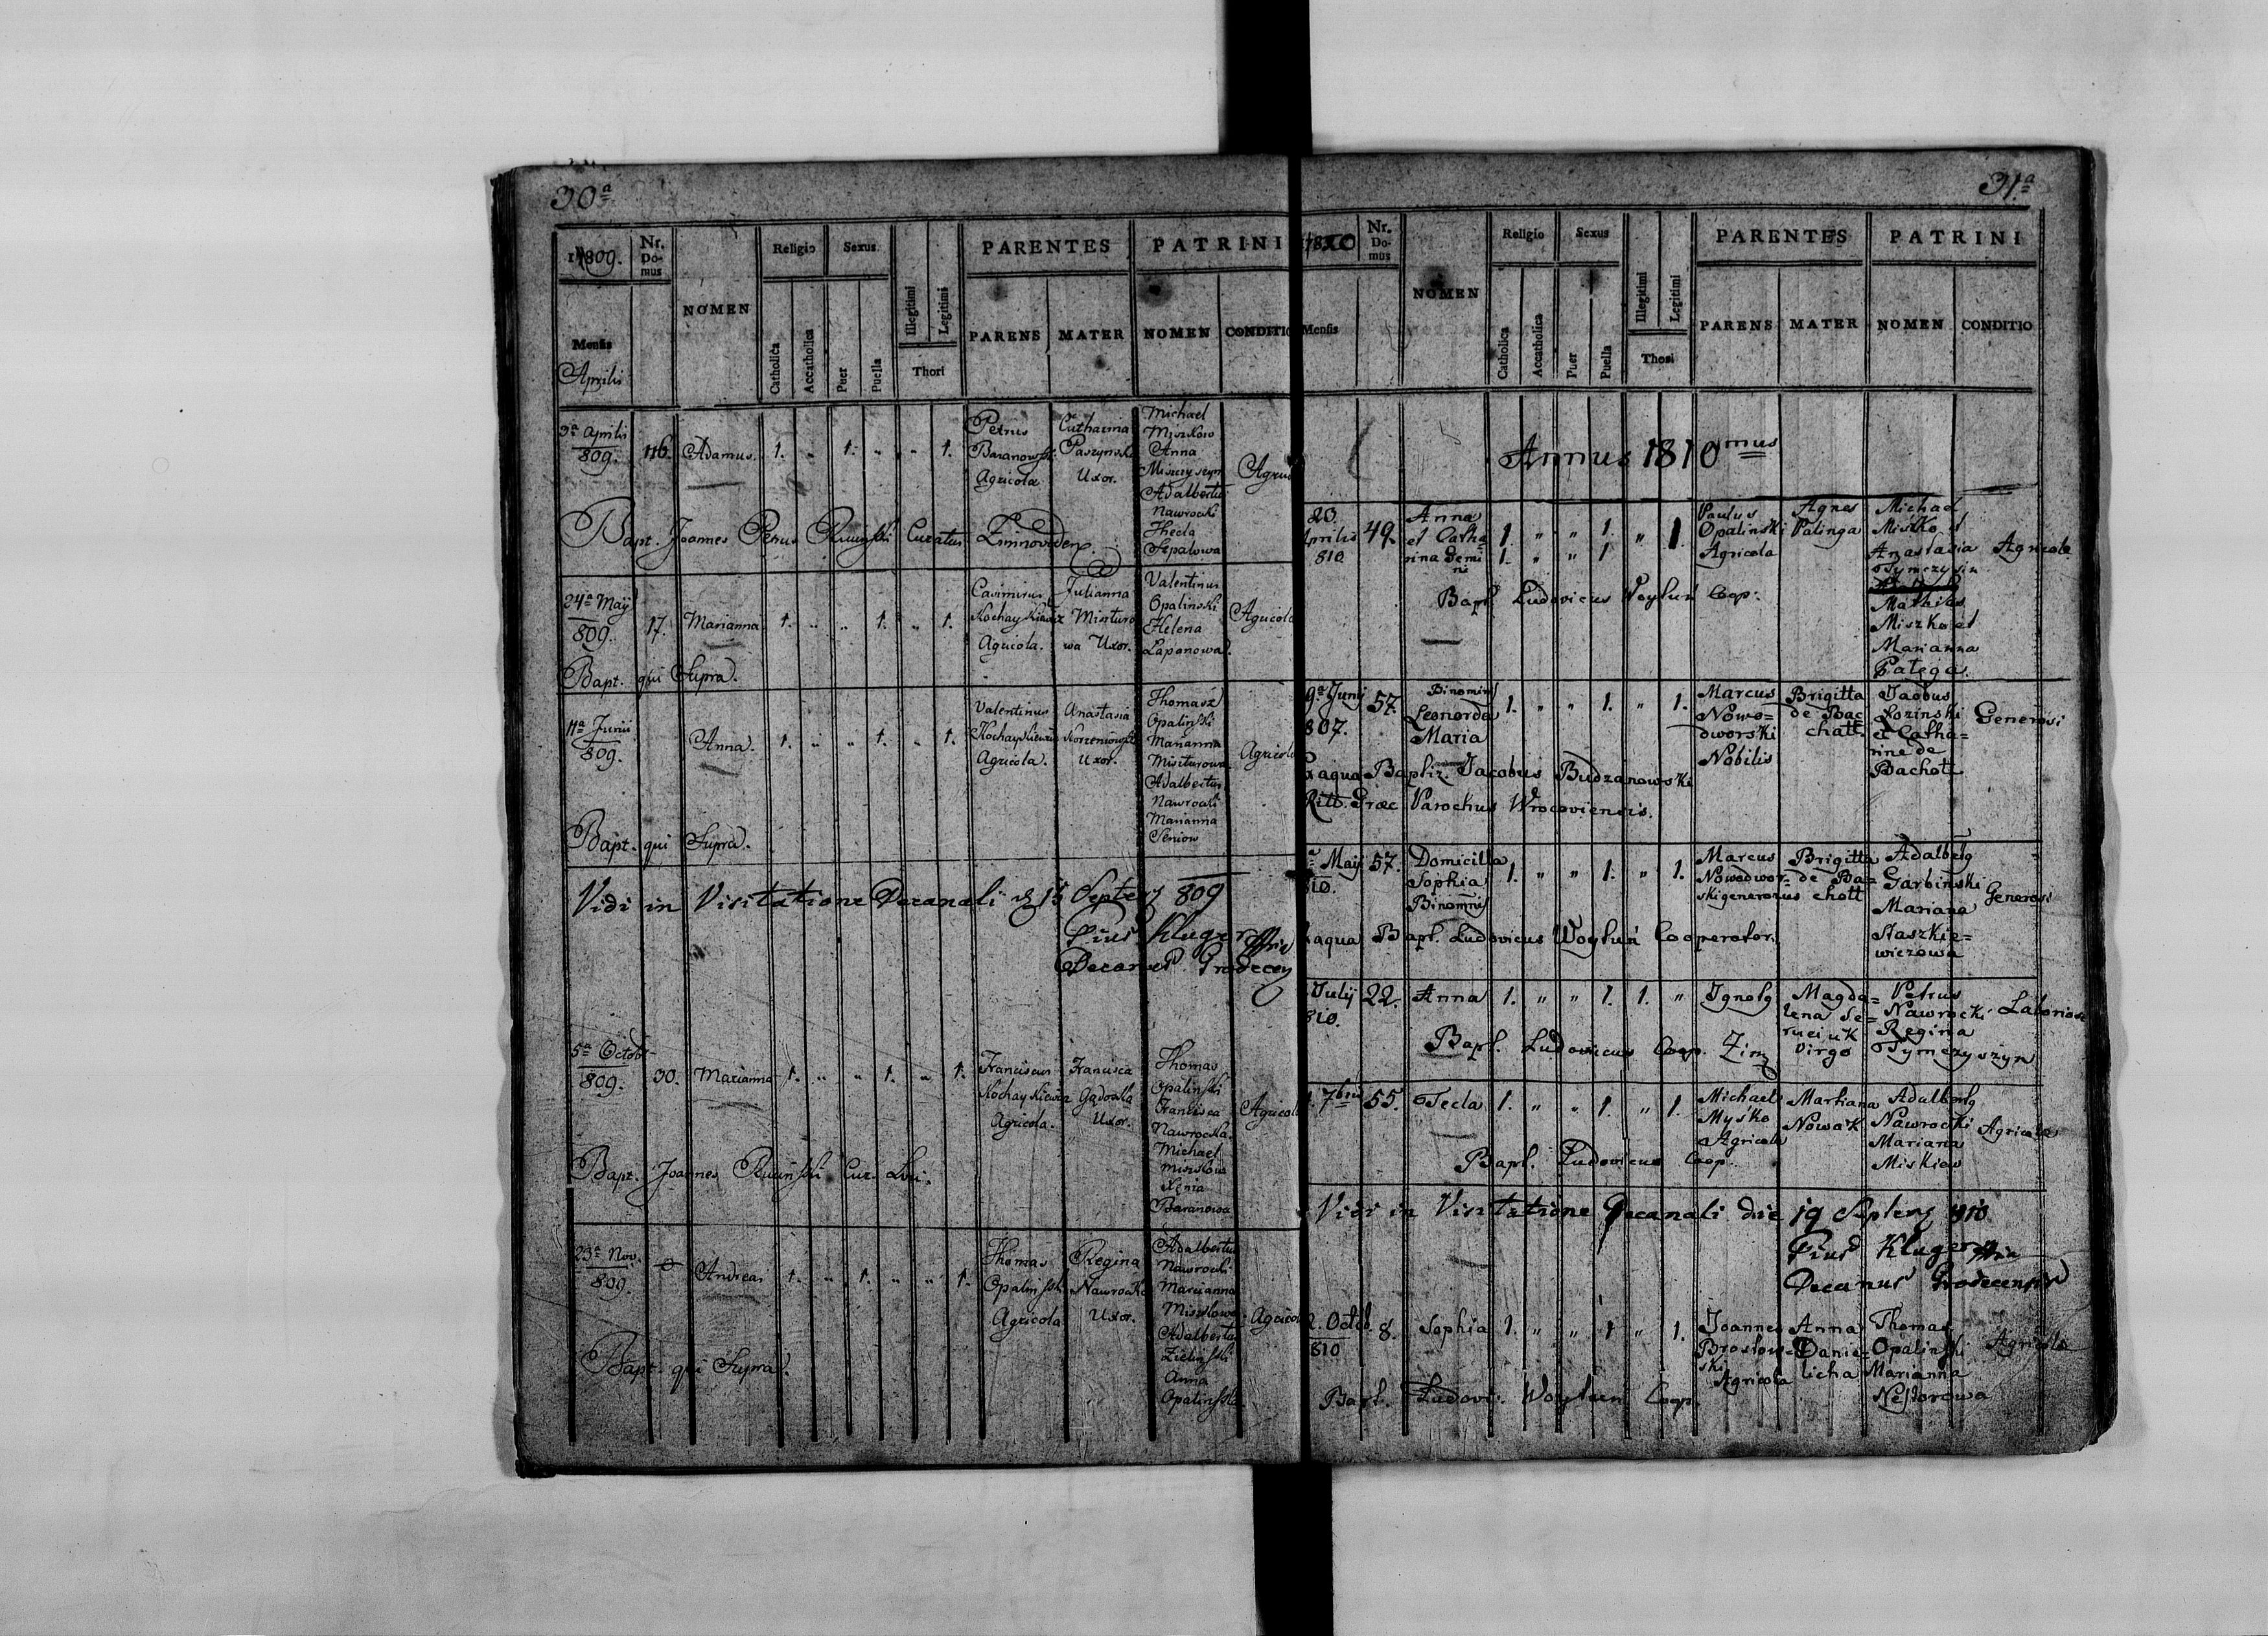 30ª
1809.
Nr. Do-mus
NOMEN
Religio
Sexus
PARENTES
PATRINI
Mensis
Aprilis
Catholica
Accatholica
Puer
Puella
Illegitimi
Legitimi
Thori
PARENS
MATER
NOMEN
CONDITIO
3ª Aprilis 809.
116.
Adamus.
1. " 1. " " 1.
Petrus
Baranowski
Agricola
Catharina
Paszynska
Uxor.
Michael
Miszkow
Anna
Miszczyszyn
Adalbertus
Nawrocki
Thecla
Szpalowa
Bapt. Joannes Petrus Curatus Zimnoveden.
24ª Maÿ 809.
17.
Marianna
1. " " 1. " 1.
Casimirus
Kochaykiewicz
Agricola.
Julianna
Miszturo
wa Uxor.
Valentinus
Opalinski
Helena
Laponowa.
Agricola
Bapt. qui Supra.
11ª Junii 809.
Anna.
1. " " 1. " 1.
Valentinus
Kochaykiewicz
Agricola.
Anastasia
Korzeniowska
Uxor.
Thomasz
Opalinski
Marianna
Miszturowa
Adalbertus
Nawrocki
Marianna
Seniow
Agricola
Bapt. qui Supra.
Vidi in Visitatione Decanali 15 Septbr 809
Pius Kluger mpria
Decanus Grodecen
5ª Octobr 809.
30.
Marianna
1. " " 1. " 1.
Franciscus
Kochaykiewicz
Agricola.
Francisca
Gądoska
Uxor.
Thomas
Opalinski
Francisca
Nawrocka.
Michael
Miszkow
Xenia
Baranowa
Agricola
Bapt. Joannes Cur. Loci.
23ª Nov. 809.
Andreas
1. " 1. " " 1.
Thomas
Opalinski
Agricola
Regina
Nawrocka
Uxor.
Adalbertus
Nawrocki
Marianna
Miszkowa
Adalbertus
Zielinski
Anna
Opalinska.
Agricola
Bapt. qui Supra.
31.ª
1810
Nr. Do-mus
NOMEN
Religio
Sexus
PARENTES
PATRINI
Mensis
Catholica
Accatholica
Puer
Puella
Illegitimi
Legitimi
Thori
PARENS
MATER
NOMEN
CONDITIO
Annus 1810mus
23.
Aprilis
810
49.
Anna
et Catha
rina Gemi
ni
1. " " 1. " 1.
1. " " 1
Paulus
Opalinski
Agricola
Agnes
Palinga
Michael
Miśko et
Anastasia
Tymczyszn
Mathias
Miszko et
Marianna
Patega.
Agricola
Bapt. Ludovicus Woytuń Coop:
9ª Junÿ
807.
57.
Binominis
Leonorda
Maria
1. " " 1. " 1.
Marcus
Nowo=
dworski
Nobilis
Brigitta
de Bac
chott.
Jacobus
Łozinski
et Catha=
rine de
Bachott
Generosi
aqua Baptiz. Jacobus Budzanowski
Ritt. Græc Parochus Wrocoviensis.
Maÿ
810.
57.
Domicilla
Sophia
Binominis
1. " " 1. " 1.
Marcus
Nowodwor-
ski generosus
Brigitta
de Ba=
chott
Adalberg
Garbinski
Mariana
Staszkie=
wiczowa
Generosi
aqua Bapt. Ludovicus Woytuń Cooperator.
Julÿ
810.
22.
Anna
1. " " 1. 1. "
Ignotg
Magda=
lena Se=
ruciuk
Virgo
Petrus
Nawrocki
Regina
Tymczyszyn
Laboriosi
Bapt. Ludovicus Coop. Zim
7bris
55.
Tecla
1. " " 1. " 1.
Michael
Myśko
Agricola
Martiana
Nowak
Adalbertg
Nawrocki
Mariana
Miskiow
Agricola
Bapt. Ludovicus Coop.
Vidi in Visitatione Decanali die 19 Septbrg 1810
Pius Kluger mpria
Decanus Grodecensis
2. Octob.
810
8.
Sophia
1. " " 1 " 1.
Joannes
Brostow-
ski
Agricola
Anna
Danie-
licha
Thomas
Opalinski
Marianna
Nestorowa
Agricola
Bapt. Ludovi: Woytuń Coop.